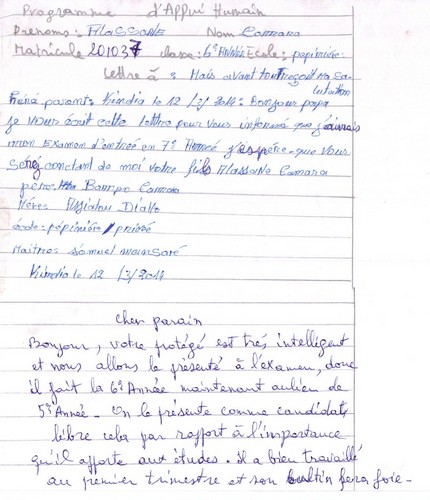 Programme d'Appui Humain
Prenoms: Alassane Nom Camara
Matricule 201037 classe: 6e ANNÉE École: pepinière:
Lettre à : Mais avant tout reçoit Ma sa-
lutation
Kindia le 12 /3/2014: Bonjour papa
je vous écrit cette lettre pour vous informé que j'aurais
mon Examen d'entrée en 7e Année j'éspère que vous
Seréz contant de moi votre fils Alassane Camara
pere Bampo Camara
Mére: Assiatou Diallo
école: pépinière / privée
Maître: Samuel
Kindia le 12 /3/2014
Cher parain
Bonjour, votre protégé est trés intelligent
et nous allons le présenté à l'examen, donc
il fait la 6e Année maintenant aulieu de
5e Année - On le présente comme candidat
libre cela par rapport à l'importance
qu'il apporte aux études. Il a bien travaillé
au premier trimestre et son bultin fera foie-